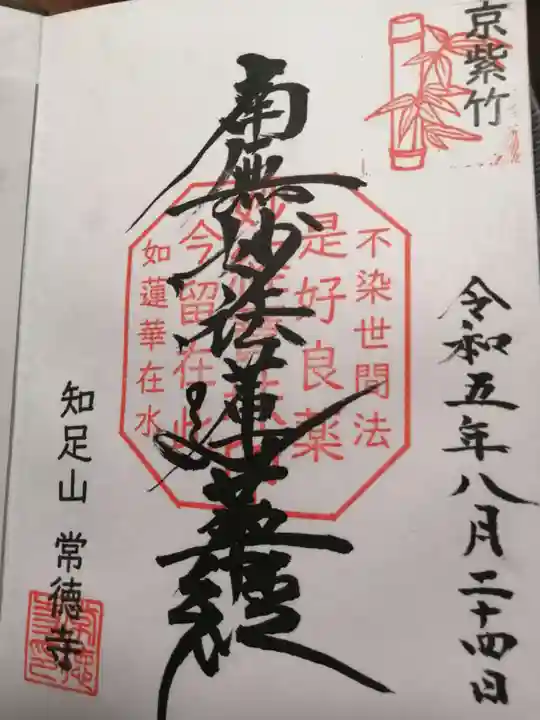 京紫竹
令和五年八月二十四日
不染世間法
是好良薬
南無妙法蓮華経
今留在此
如蓮華在水
知足山 常徳寺